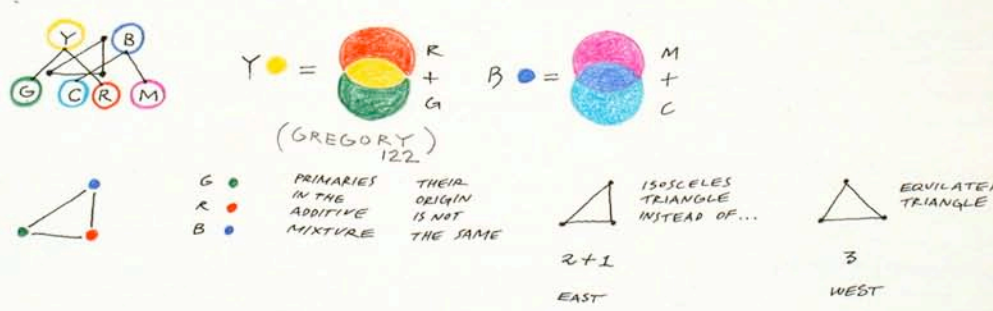 Y B
G C R M
Y = R + G
(GREGORY 122)
B = M + C
G
R
B
PRIMARIES
IN THE
ADDITIVE
MIXTURE
THEIR
ORIGIN
IS NOT
THE SAME
ISOSCELES
TRIANGLE
INSTEAD OF...
2+1
EAST
EQUILATE
TRIANGLE
3
WEST